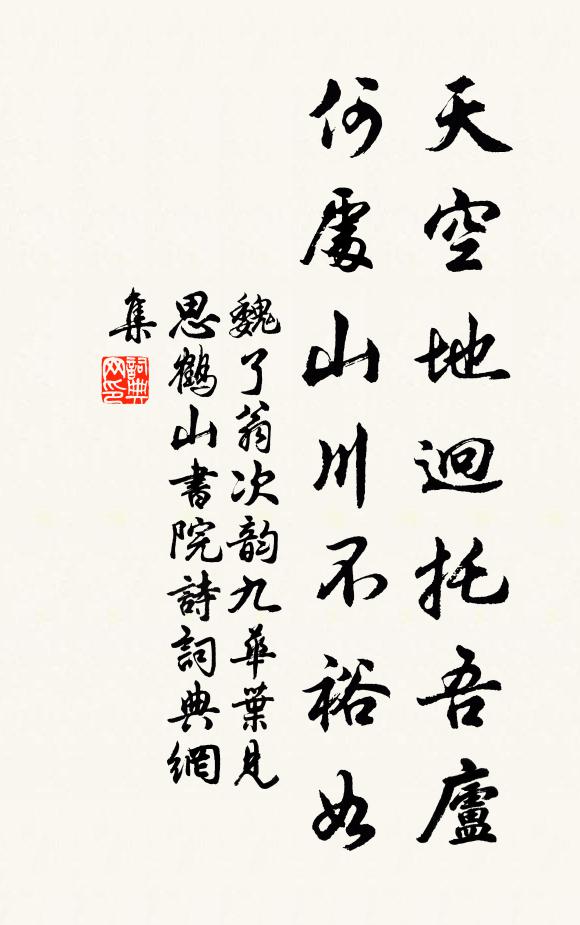 天空地迥托吾廬
何處山川不裕如
魏了翁次韵九華葉見
思鶴山書院詩詞典網
集
詞典
网印